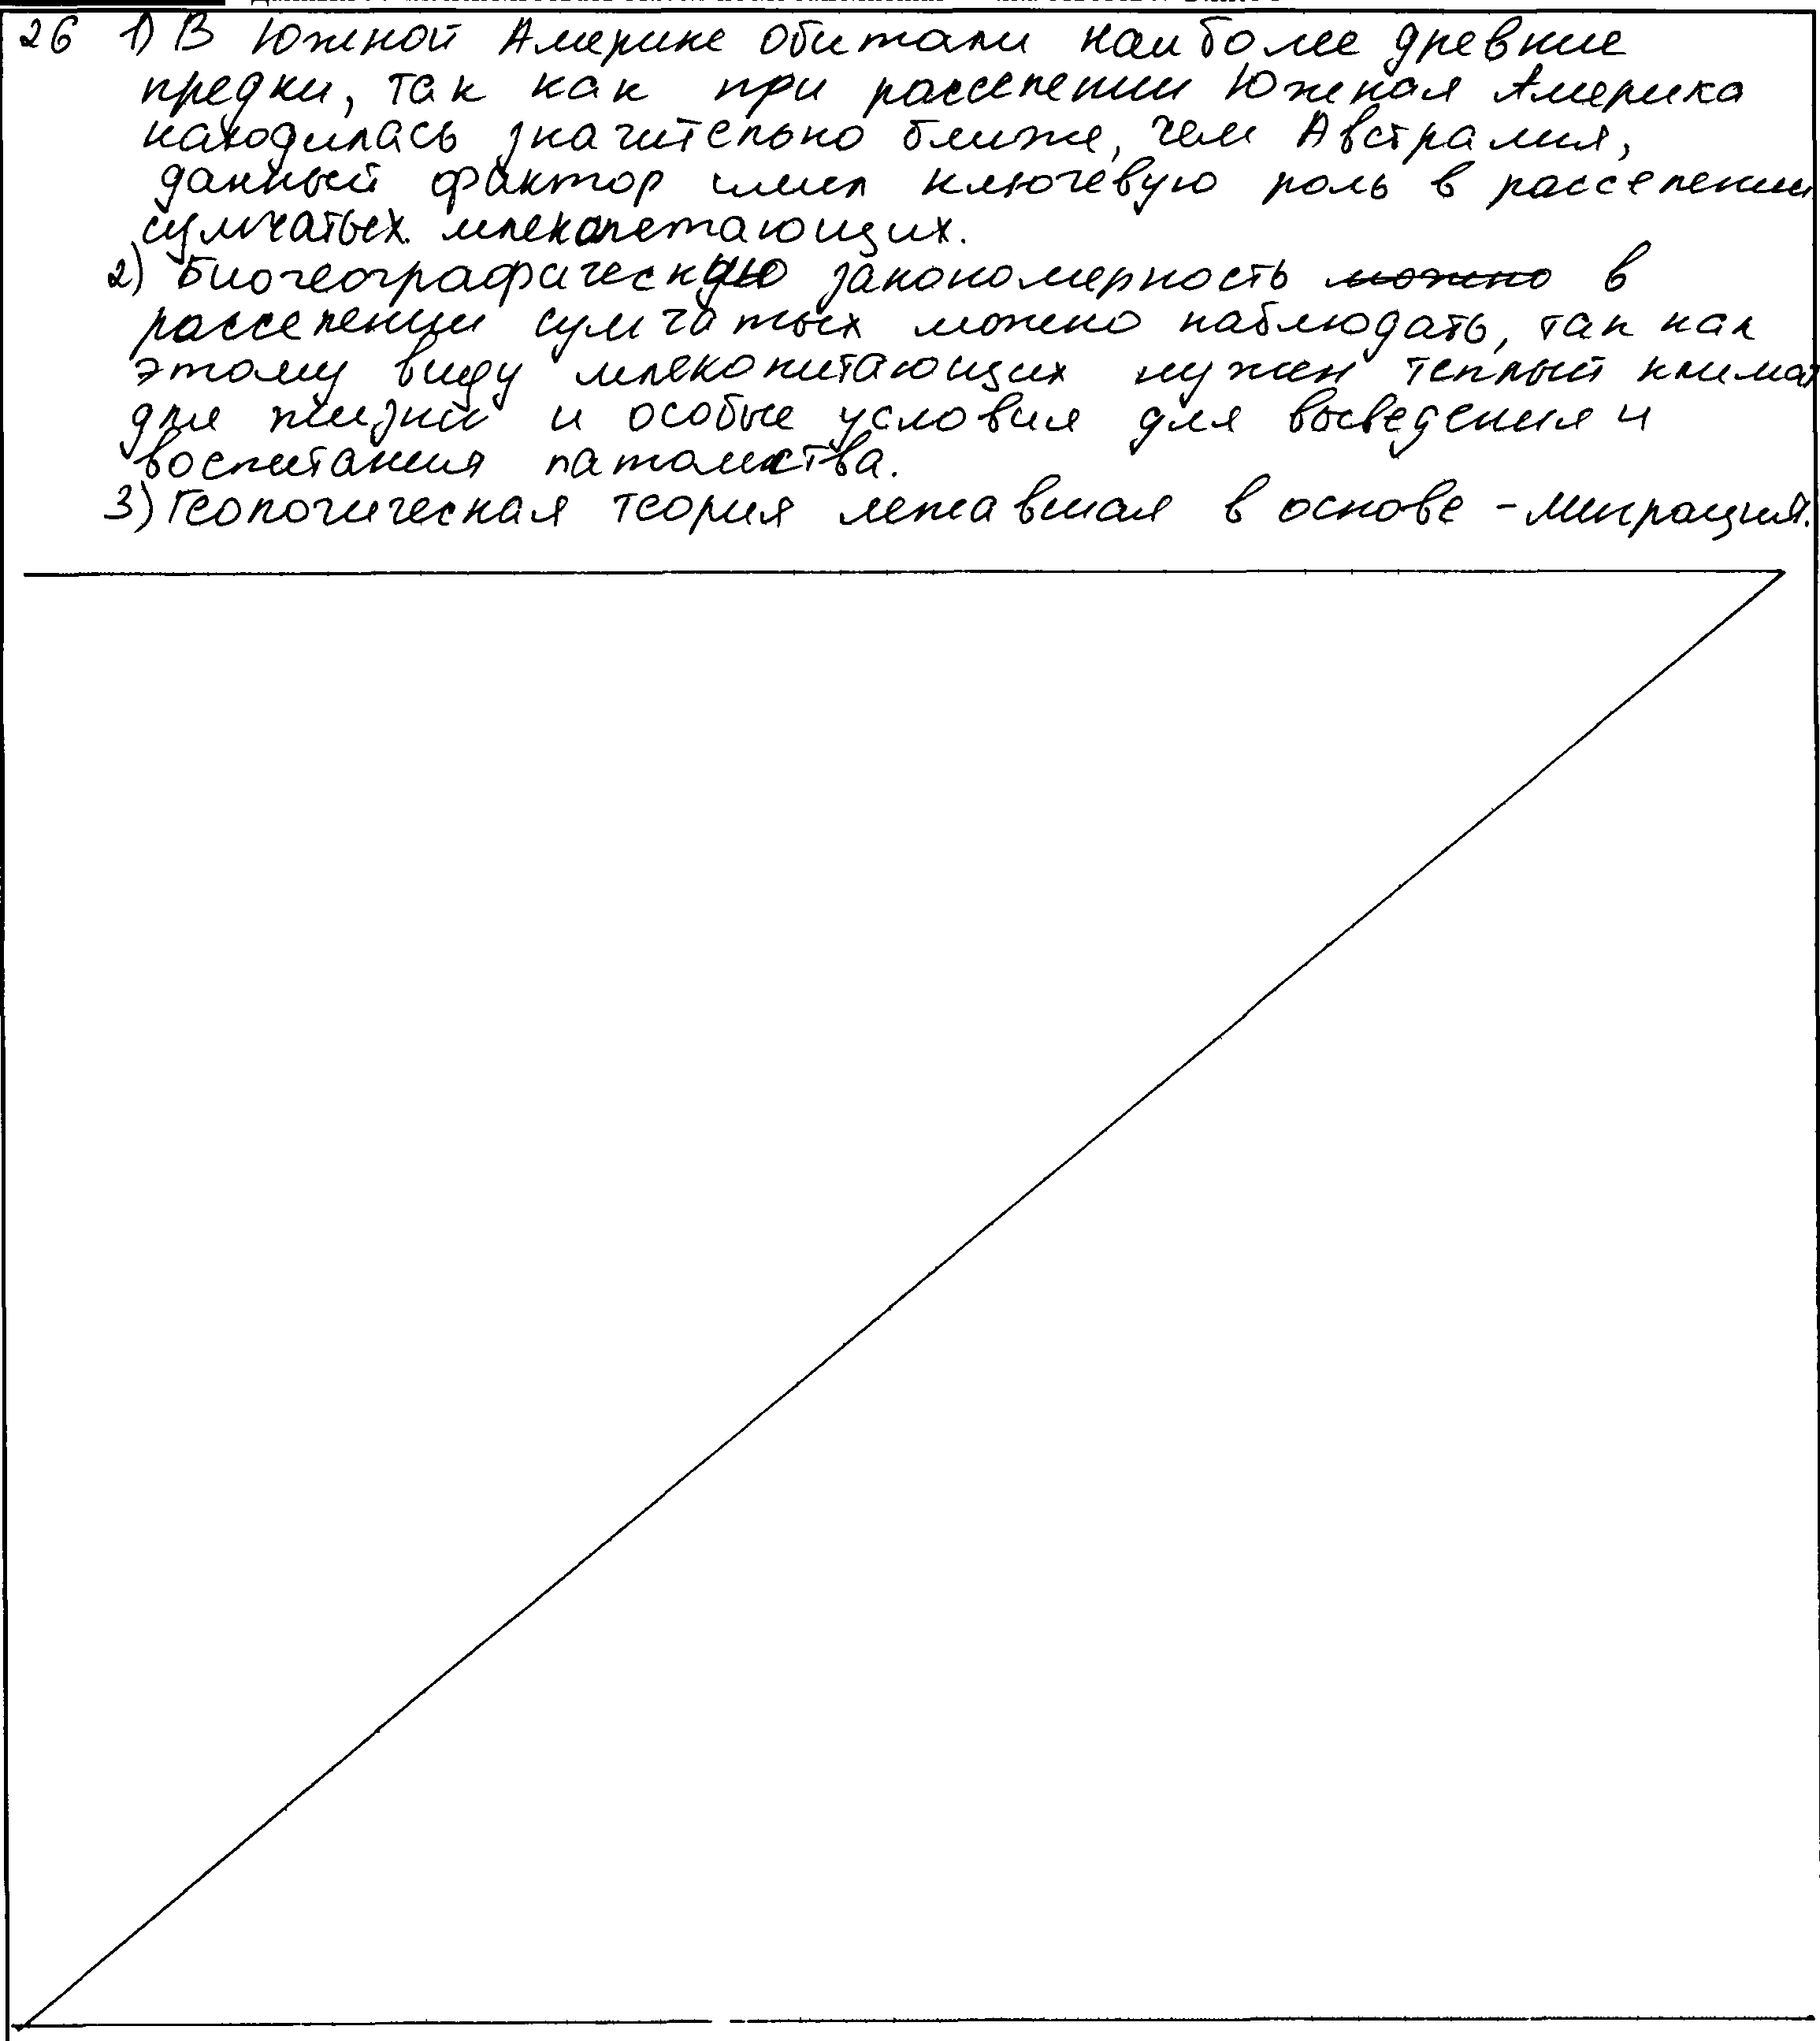 26 1) В Южной Америке обитали наиболее древние
предки, так как при расселении Южная Америка
находилась значительно ближе, чем Австралия,
данный фактор имел ключевую роль в расселении
сумчатых млекопетающих.
2) Биогеографическую закономерность можно в
расселении сумчатых можно наблюдать, так как
этому виду млекопитающих нужен теплый климат
для жизни и особые условия для высведения и
воспитания патомства.
3) Геологическая теория лежавшая в основе - миграция.